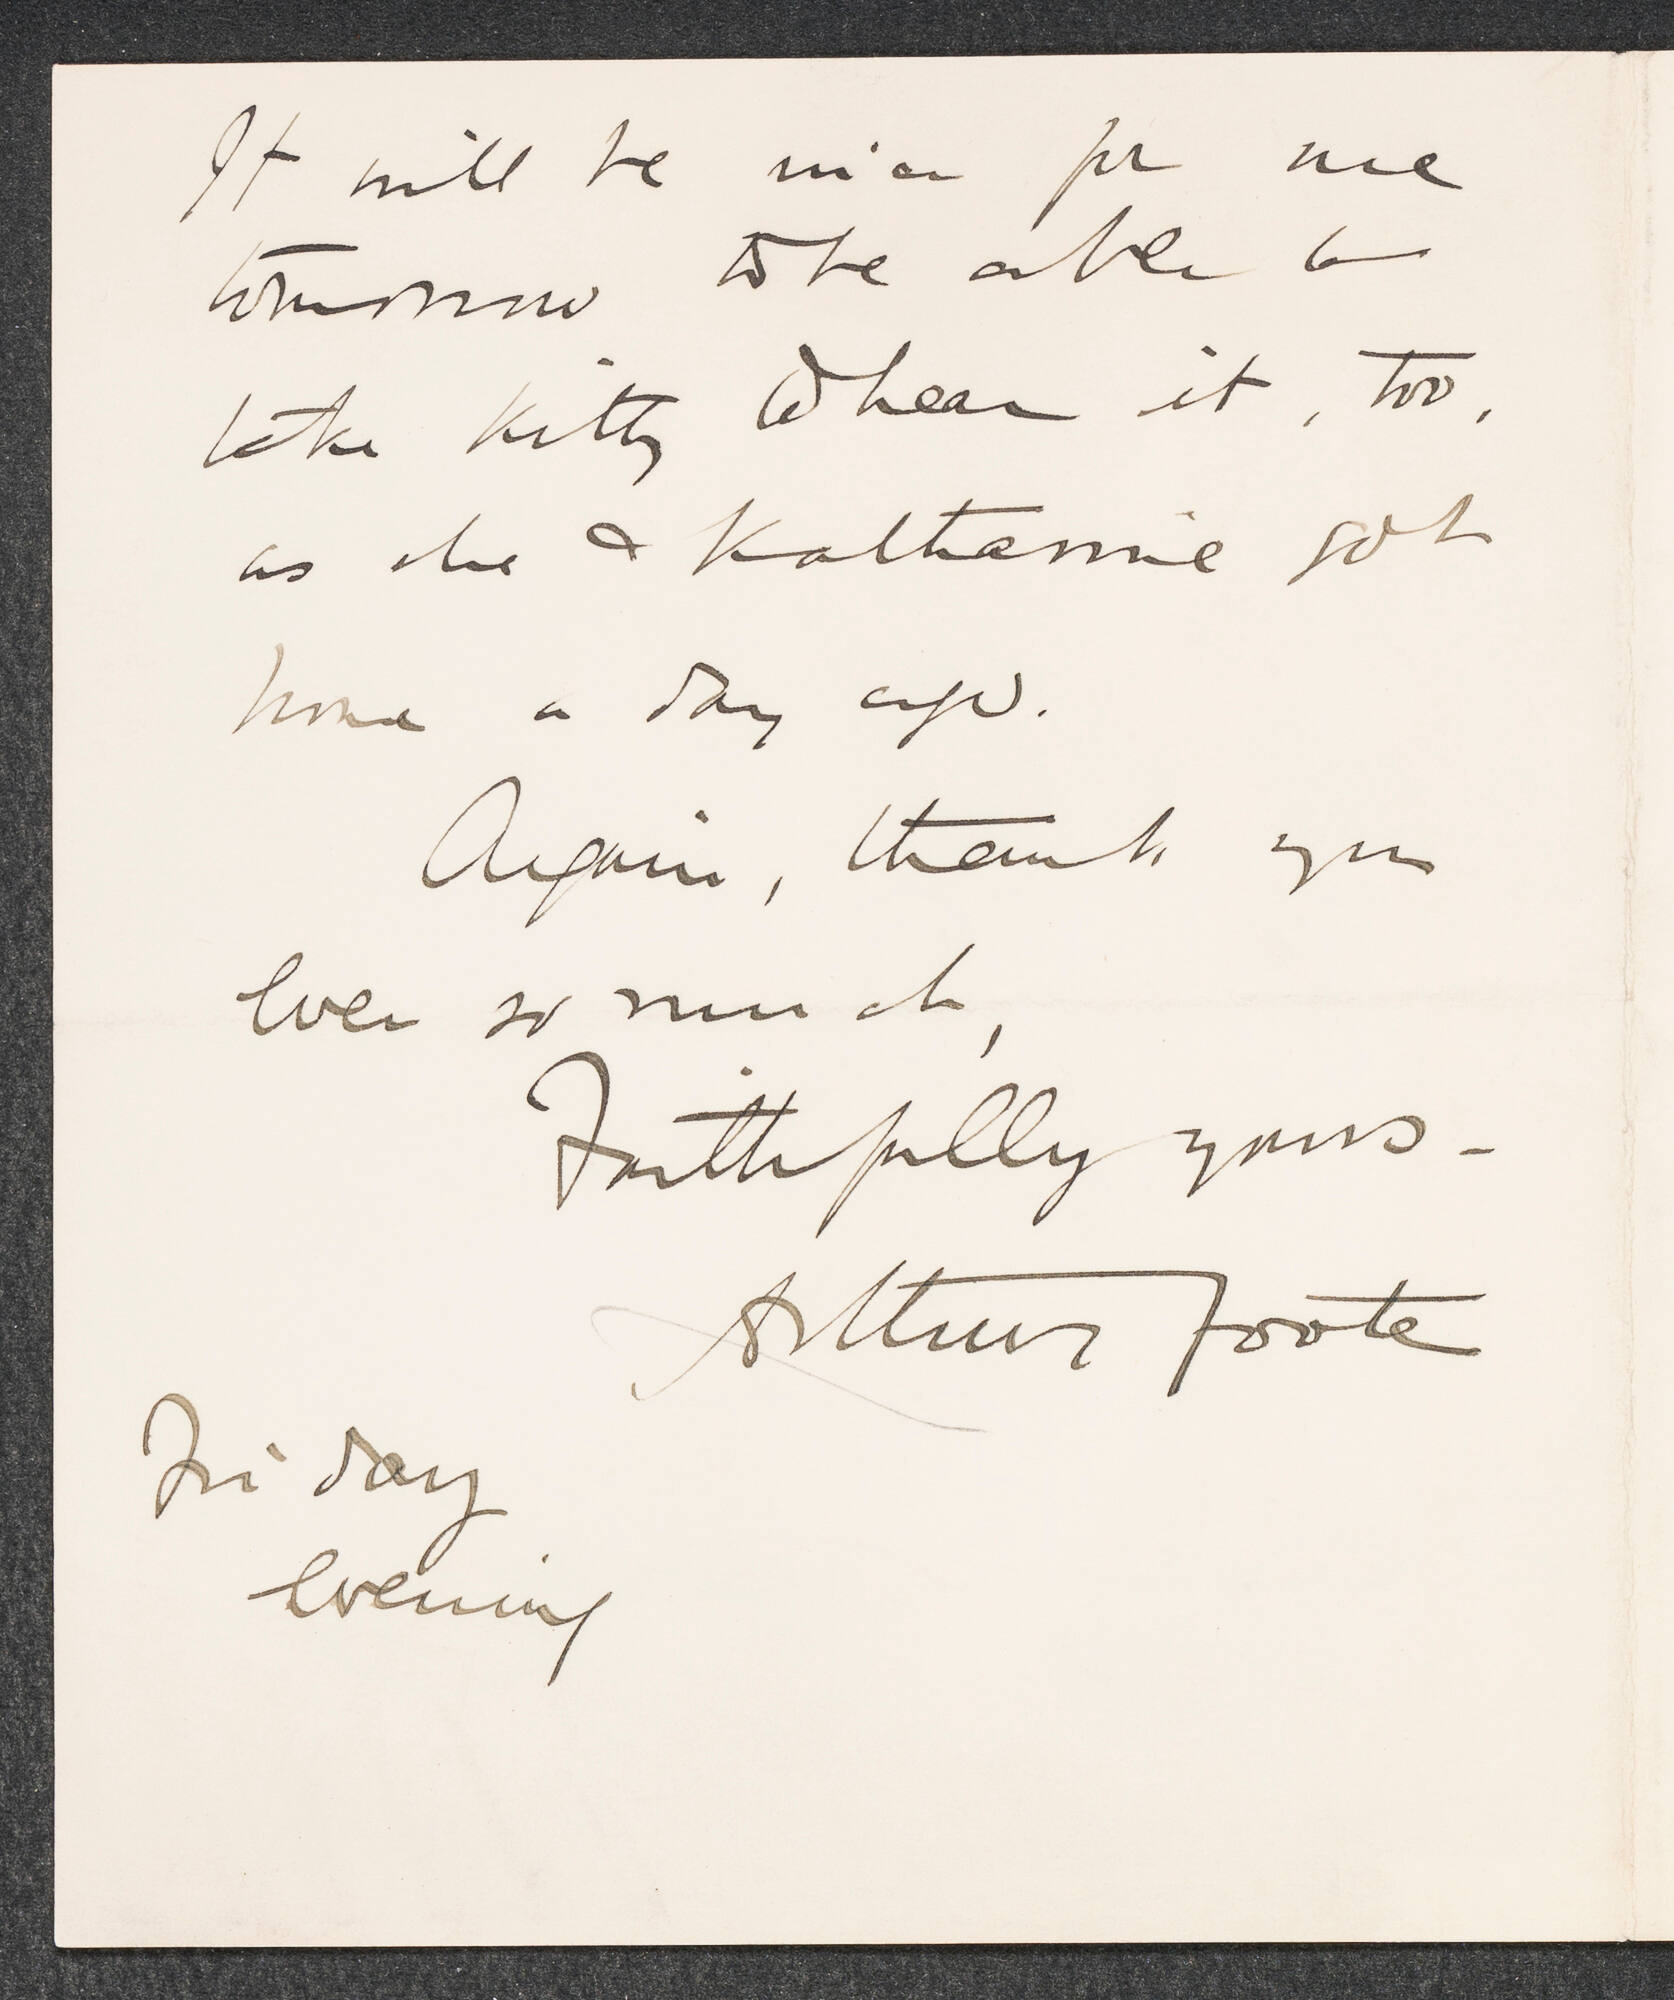 It will be nice for me
tomorrow to be able to
take Kitty to hear it, too,
as she & Katharine got
home a day ago.
Again, thank you
ever so much,
Faithfully yours -
Arthur Foote
Friday
evening